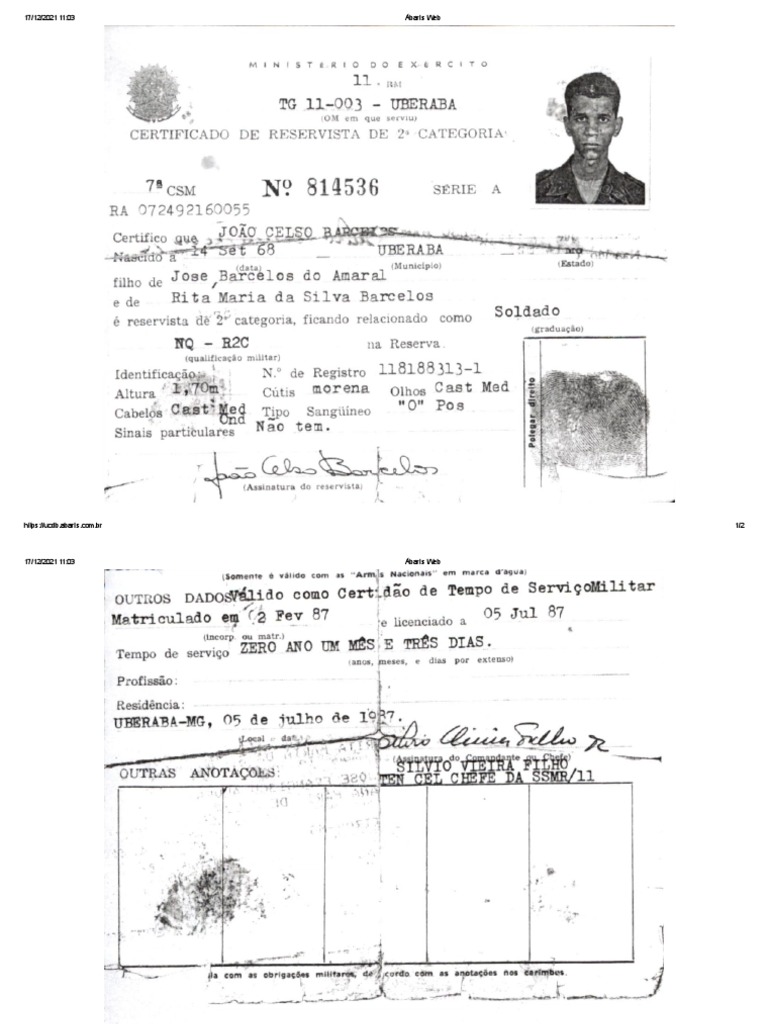 17/12/2021 11:03 Ábaris Web
MINISTÉRIO DO EXÉRCITO
11.ª RM
TG 11-003 - UBERABA
(OM em que serviu)
CERTIFICADO DE RESERVISTA DE 2ª CATEGORIA
7ª CSM Nº 814536 SÉRIE A
RA 072492160055
Certifico que JOÃO CELSO BARCELOS
Nascido a 14 Set 68 UBERABA
(data) (Município) (Estado)
filho de Jose Barcelos do Amaral
e de Rita Maria da Silva Barcelos
é reservista de 2ª categoria, ficando relacionado como Soldado
(graduação)
NQ - R2C na Reserva.
(qualificação militar)
Identificação: N.º de Registro 118188313-1
Altura 1,70m Cútis morena Olhos Cast Med
Cabelos Cast Med Ond Tipo Sangüíneo "O" Pos
Sinais particulares Não tem.
Polegar direito
João Celso Barcelos
(Assinatura do reservista)
https://ucdb.abaris.com.br 1/2
17/12/2021 11:03 Ábaris Web
(Somente é válido com as "Armas Nacionais" em marca d'água)
OUTROS DADOS Válido como Certidão de Tempo de ServiçoMilitar
Matriculado em 02 Fev 87 e licenciado a 05 Jul 87
(incorp. ou matr.)
Tempo de serviço ZERO ANO UM MÊS E TRÊS DIAS.
(anos, meses, e dias por extenso)
Profissão:
Residência:
UBERABA-MG, 05 de julho de 1987.
Local e data
(Assinatura do Comandante ou Chefe)
SILVIO VIEIRA FILHO
OUTRAS ANOTAÇÕES TEN CEL CHEFE DA SSMR/11
com as obrigações militares, de acordo com as anotações nos carimbos.